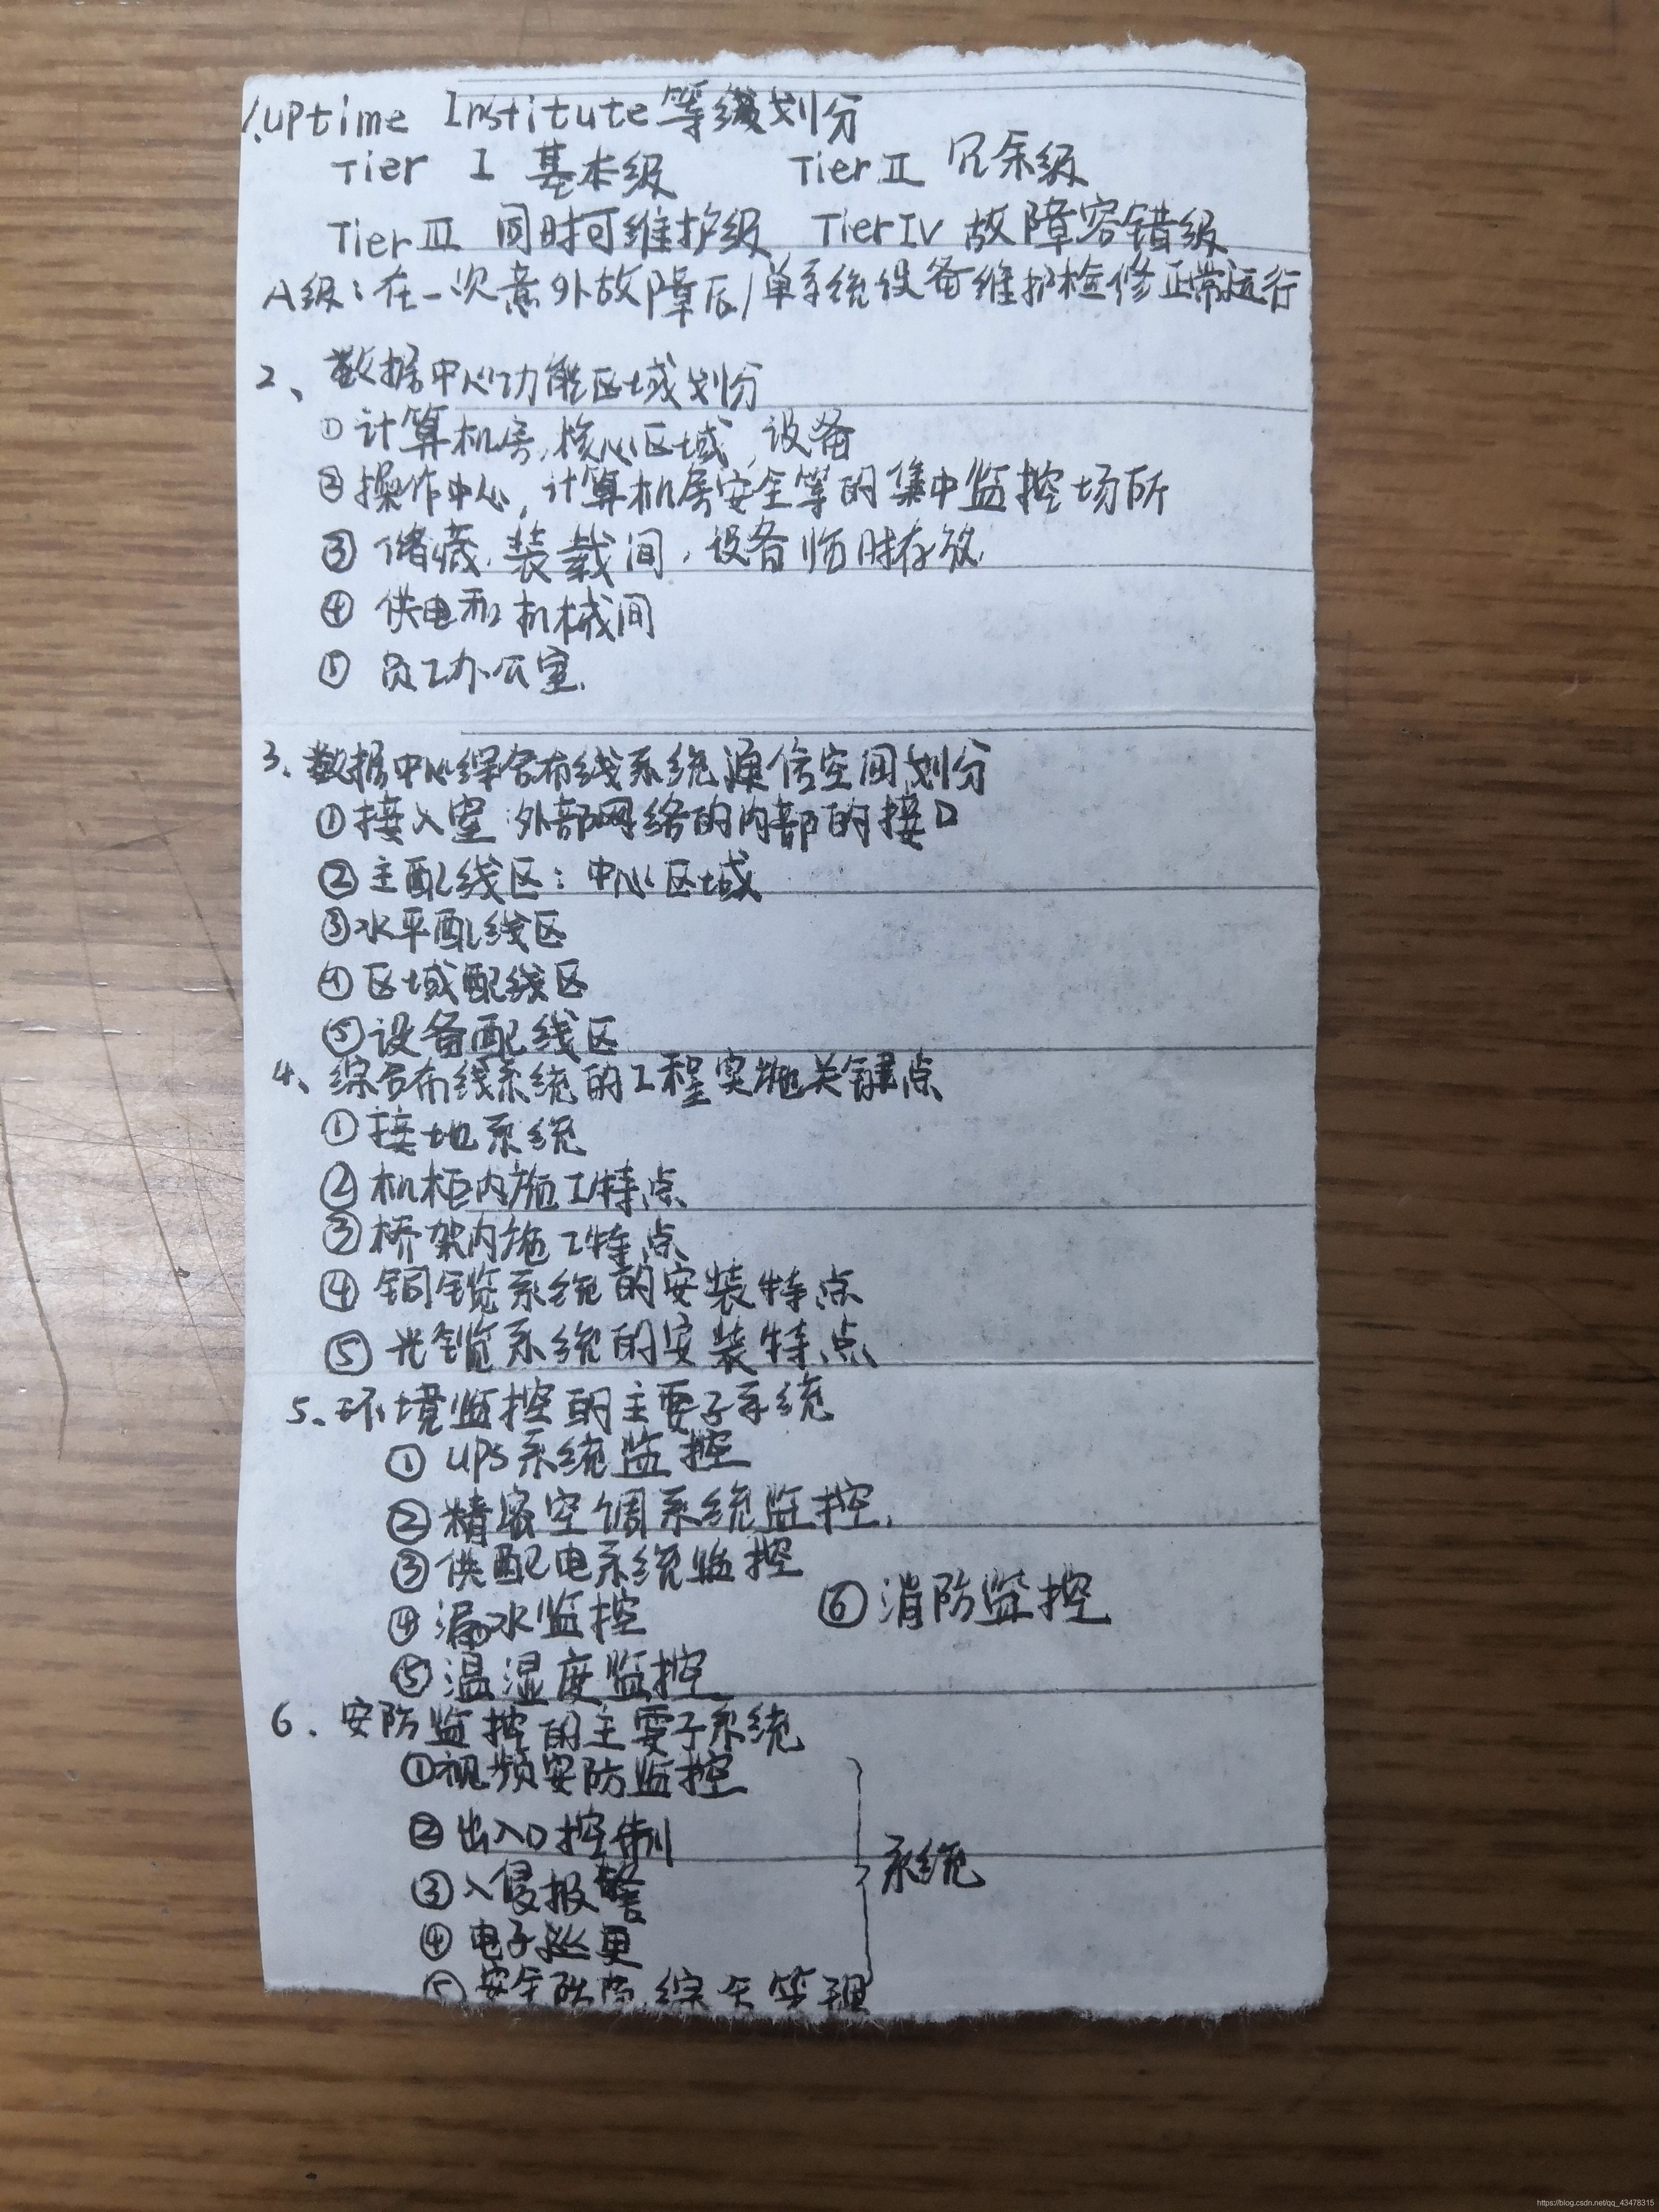 1.uptime Institute等级划分
Tier I 基本级 Tier II 冗余级
Tier III 同时可维护级 Tier IV 故障容错级
A级:在一次意外故障后/单系统设备维护检修正常运行
2、数据中心功能区域划分
①计算机房,核心区域,设备
②操作中心,计算机房安全等的集中监控场所
③储藏.装载间,设备临时存放.
④供电和机械间
⑤员工办公室.
3、数据中心综合布线系统通信空间划分
①接入室 外部网络的内部的接口
②主配线区:中心区域
③水平配线区
④区域配线区
⑤设备配线区
4、综合布线系统的工程实施关键点
①接地系统
②机柜内施工特点
③桥架内施工特点
④铜缆系统的安装特点
⑤光缆系统的安装特点
5、环境监控的主要子系统
①UPS系统监控
②精密空调系统监控.
③供配电系统监控
④漏水监控 ⑥消防监控
⑤温湿度监控
6.安防监控的主要子系统
①视频安防监控
②出入口控制
③入侵报警 系统
④电子巡更
⑤安全防范综合管理
https://blog.csdn.net/qq_43478315